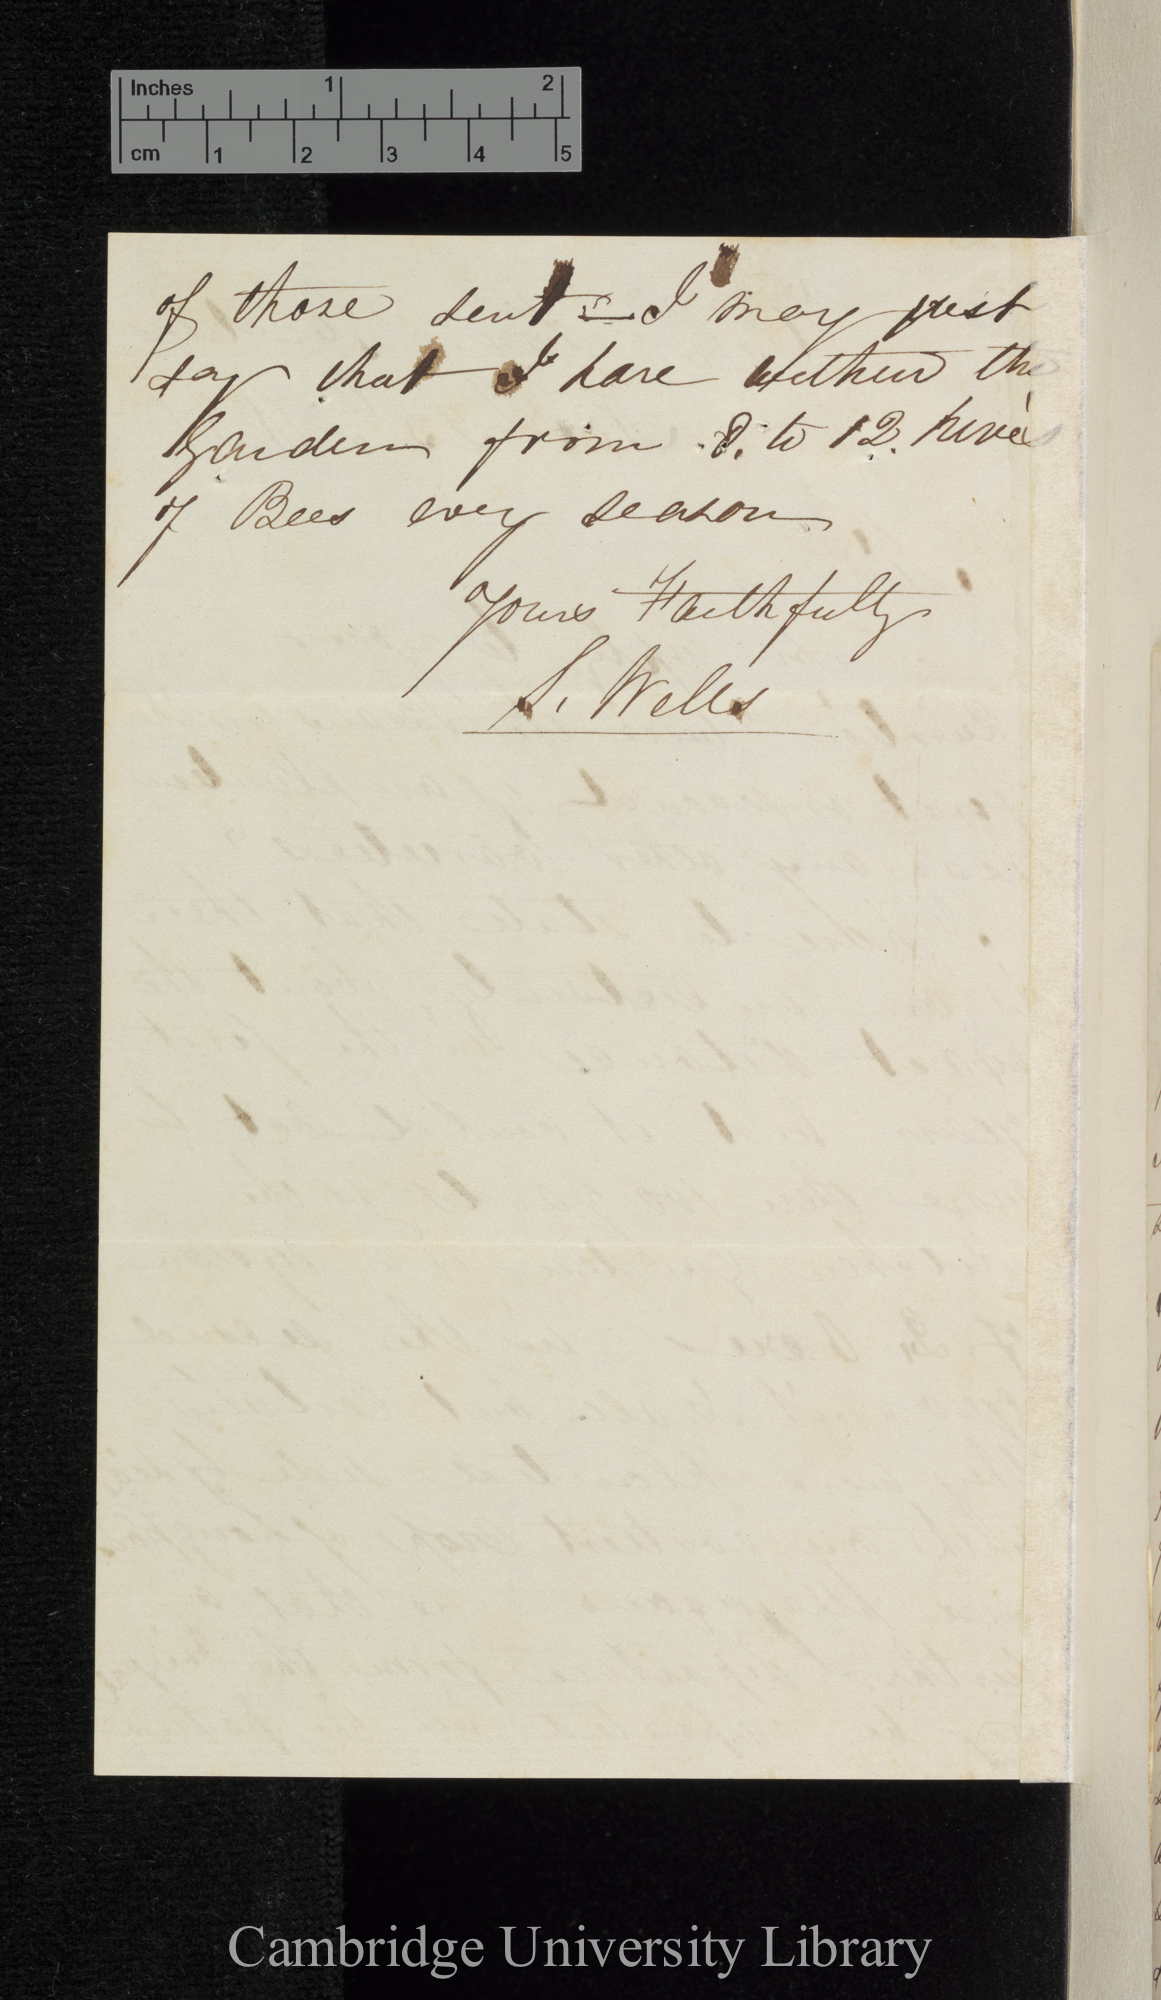 Inches 1 2
cm 1 2 3 4 5
of those sent = I may just
say that I have within the
Garden from 8. to 12. hives
of Bees every season
Yours Faithfully
S. Wells
Cambridge University Library